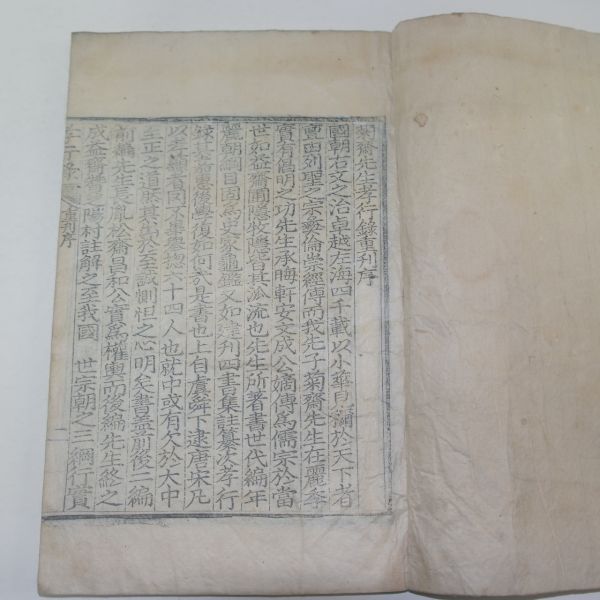 菊齋先生孝行錄重刊序
國朝右文之治卓越左海四千載以小華見稱於天下者
亶由列聖之宗彝倫崇經傳而我先子菊齋先生在麗季
實有倡明之功先生承晦軒安文成公嫡傳爲儒宗於當
世如益齋圃隱牧隱皆其派流也先生所著書世代編年
麗朝綱目固爲史家龜鑑又如建刊四書集註纂次孝行
錄其嘉惠後學復如何哉是書也上自虞舜下逮唐宋凡
以孝著者因不畢擧摠六十四人也就中或有欠於大中
至正之道然其出於至誠惻怛之心明矣書蓋前後二編
前編先生長胤松齋昌和公實爲權輿而後編先生終之
成益齋贊之陽村註解之至我國 世宗朝之三綱行實
孝行錄 重刊序 一